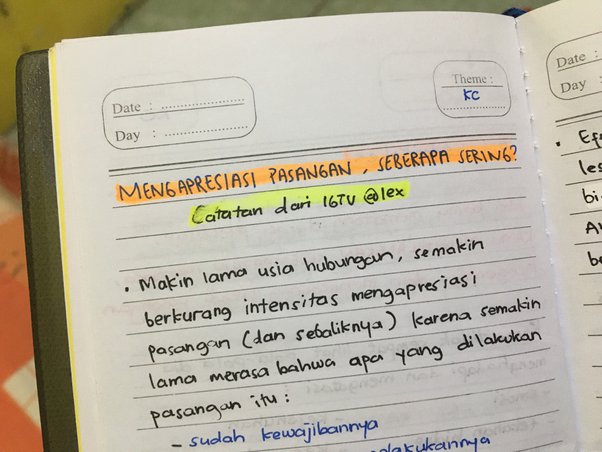 Date :
Day :
Theme :
KC
MENGAPRESIASI PASANGAN, SEBERAPA SERING?
Catatan dari IGTV @lex
• Makin lama usia hubungan, semakin
berkurang intensitas mengapresiasi
pasangan (dan sebaliknya) karena semakin
lama merasa bahwa apa yang dilakukan
pasangan itu :
- sudah kewajibannya
Date :
Day :